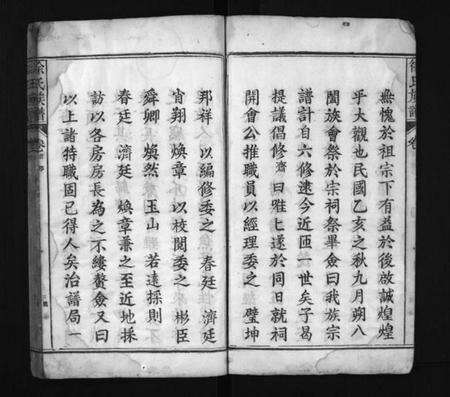 無愧於祖宗下有益於後啟誠煌煌
乎大觀也民國乙亥之秋九月朔八
闔族會祭於宗祠祭畢僉曰我族宗
譜計自六修迄今近匝一世矣子曷
提議倡修濟曰唯七遂於同日就祠
開會公推職員以經理委之 璧坤
邦祥人以編修委之 春廷 濟廷
宵翔 煥章 以校閱委之 彬臣
舜卿 煥然 玉山 若遠採則
春廷 濟廷 煥章兼之至近地採
訪以各房房長為之不縷贅僉又曰
以上諸特職固已得人矣治譜局一
徐氏族譜
卷
徐氏族譜
卷